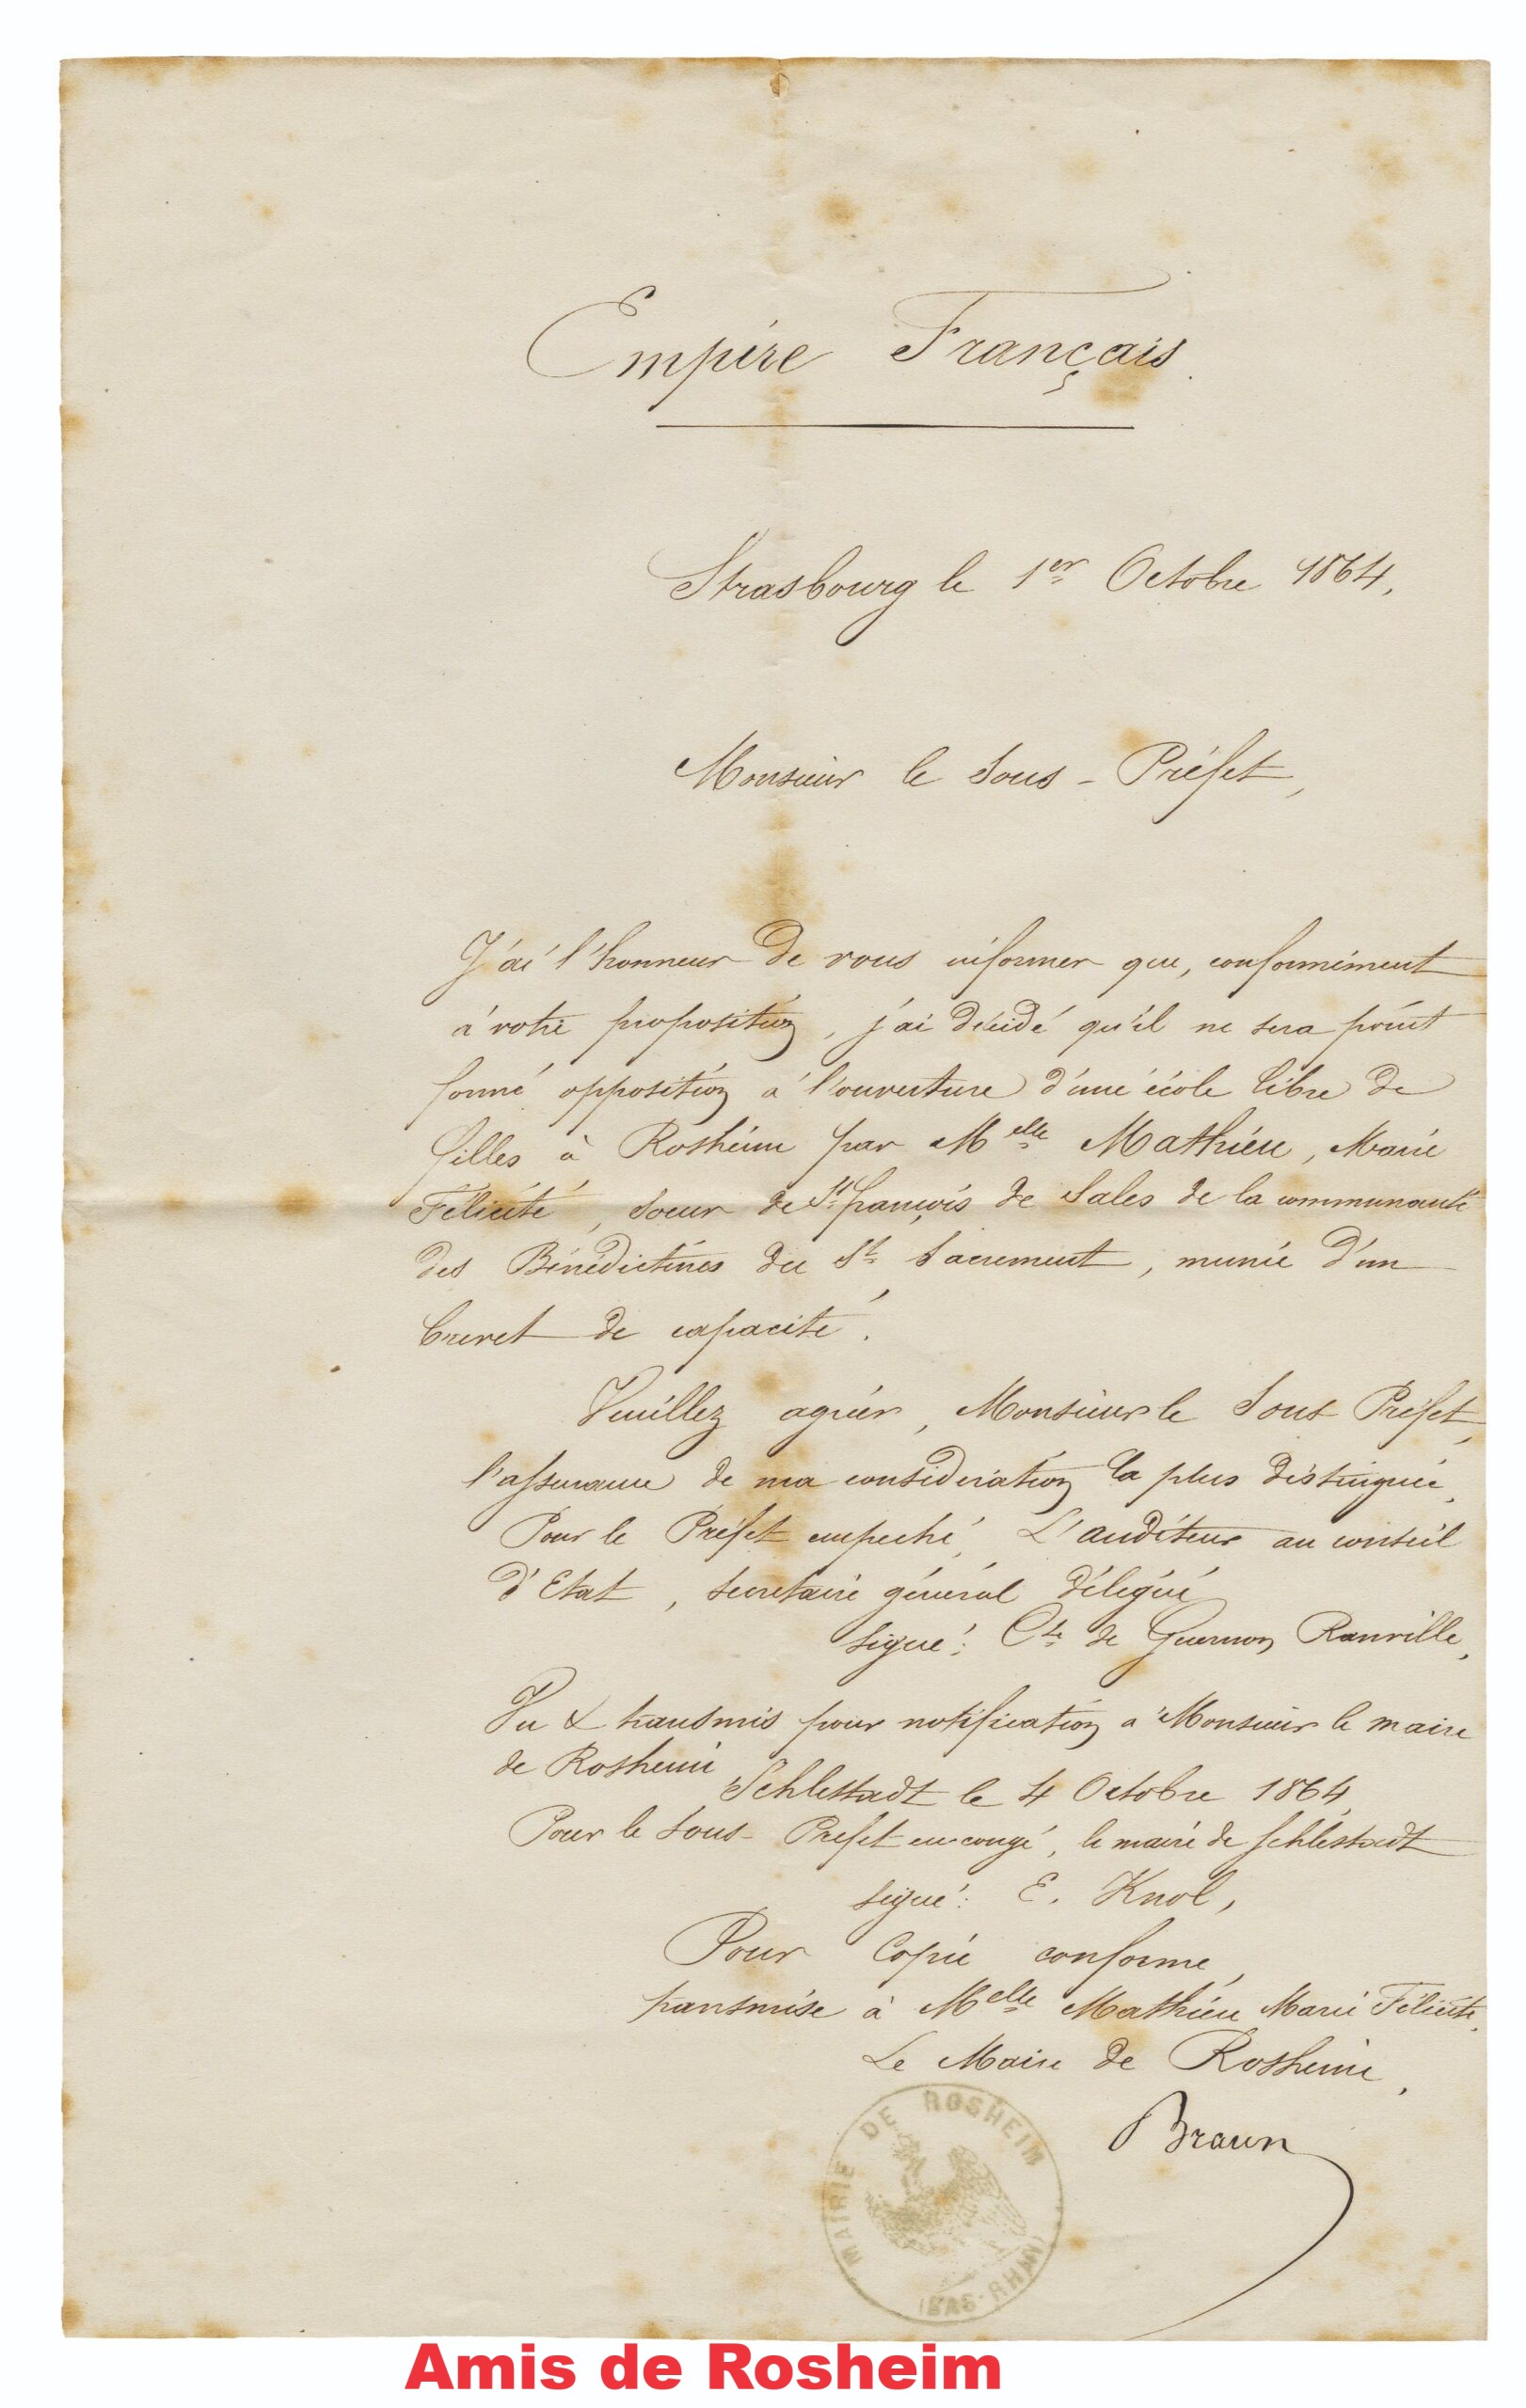 Empire Français.
Strasbourg le 1er Octobre 1864,
Monsieur le Sous-Préfet,
J'ai l'honneur de vous informer que, conformément
à votre proposition, j'ai décidé qu'il ne sera point
formé opposition à l'ouverture d'une école libre de
filles à Rosheim par Melle Mathieu, Marie
Félicité, Soeur de St. François de Sales de la communauté
des Bénédictines du St. Sacrement, munie d'un
brevet de capacité.
Veuillez agréer, Monsieur le Sous Préfet,
l'assurance de ma considération la plus distinguée,
Pour le Préfet empeché, L'auditeur au conseil
d'Etat, secretaire général délégué
signé: Cte de Guernon Ranville,
Vu & transmis pour notification a Monsieur le maire
de Rosheim
Schlestadt le 4 Octobre 1864
Pour le Sous-Prefet en congé, le maire de Schlestadt
signé: E. Knol,
Pour Copie conforme,
transmise à Melle Mathieu Marie Félicité,
Le Maire de Rosheim,
Braun
MAIRIE DE ROSHEIM
(BAS-RHIN)
Amis de Rosheim